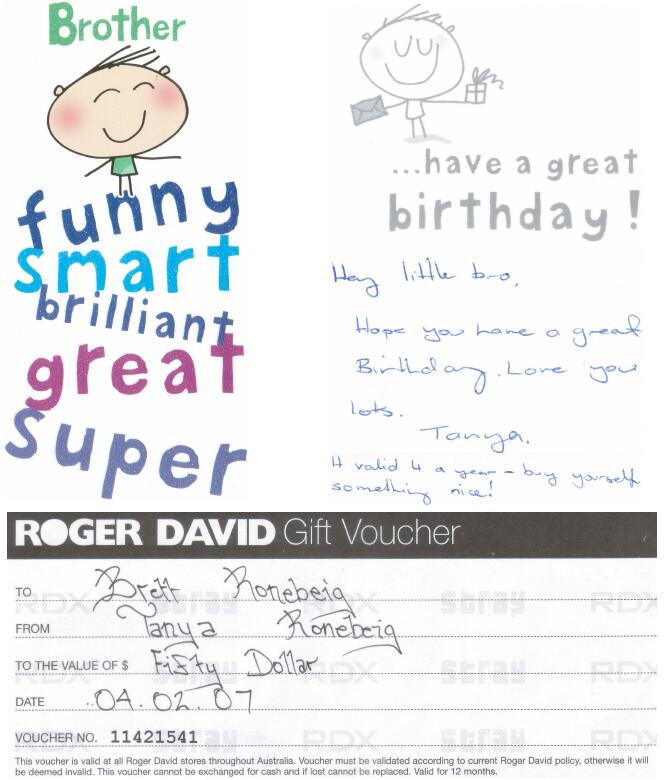 Brother
funny
smart
brilliant
great
super
...have a great
birthday!
Hey little bro,
Hope you have a great
Birthday. Love you
lots.
Tanya.
It valid 4 a year - buy yourself
something nice!
ROGER DAVID Gift Voucher
TO Brett Ronebeig
FROM Tanya Ronebeig
TO THE VALUE OF $ Fifty Dollar
DATE 04.02.07
VOUCHER NO. 11421541
This voucher is valid at all Roger David stores throughout Australia. Voucher must be validated according to current Roger David policy, otherwise it will
be deemed invalid. This voucher cannot be exchanged for cash and if lost cannot be replaced. Valid for 12 months.